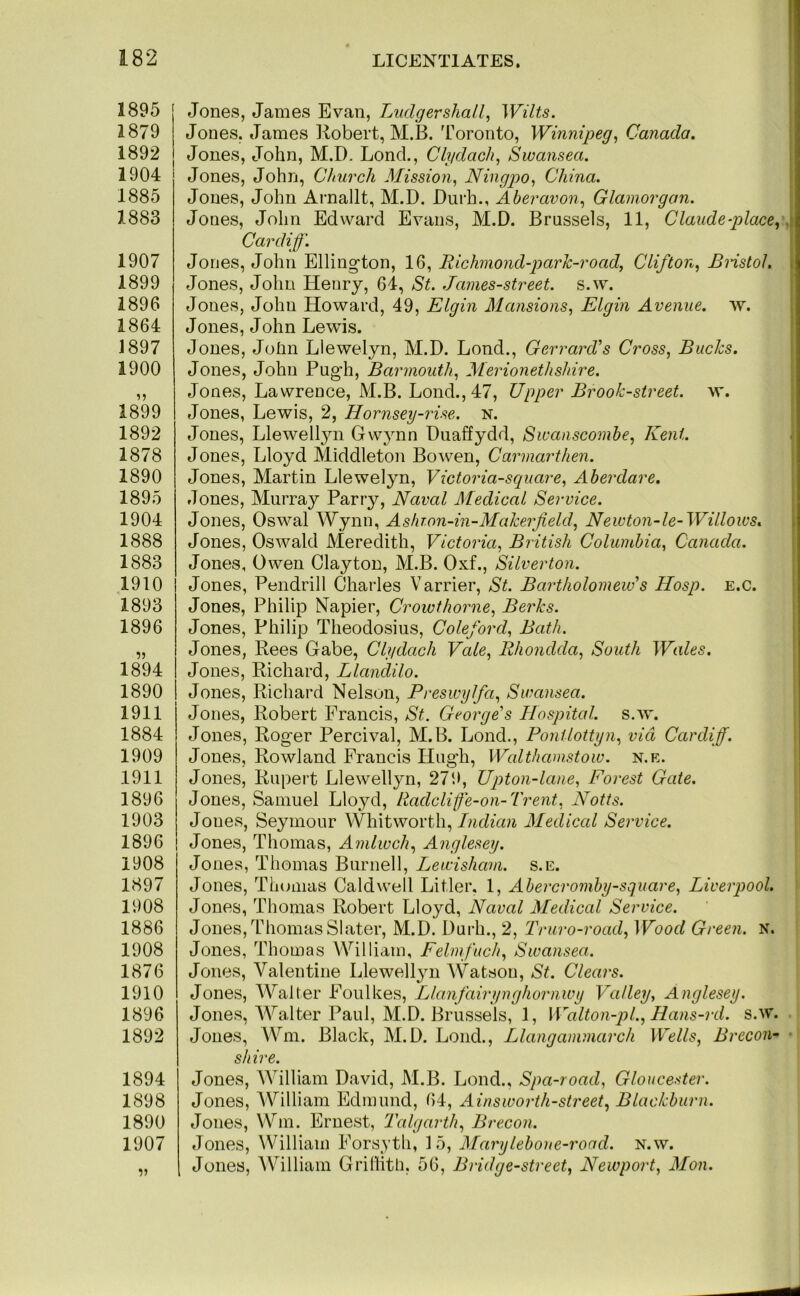 182 LICENTIATES.
1895 Jones, James Evan, Ludgershall, Wilts.
1879 Jones, James Robert, M.B. Toronto, Winnipeg, Canada.
1892 Jones, John, M.D. Lond., Clydach, Swansea.
1904 Jones, John, Church Mission, Ningpo, China.
1885 Jones, John Arnallt, M.D. Durh., Aberavon, Glamorgan.
1883 Jones, John Edward Evans, M.D. Brussels, 11, Claude-place,
Cardiff.
1907 Jones, John Ellington, 16, Richmond-park-road, Clifton, Bristol.
1899 Jones, John Henry, 64, St. James-street. S.W.
1896 Jones, John Howard, 49, Elgin Mansions, Elgin Avenue. W.
1864 Jones, John Lewis.
1897 Jones, John Llewelyn, M.D. Lond., Gerrard's Cross, Bucks.
1900 Jones, John Pugh, Barmouth, Merionethshire.
„ Jones, Lawrence, M.B. Lond., 47, Upper Brook-street. W.
1899 Jones, Lewis, 2, Hornsey-rise. N.
1892 Jones, Llewellyn Gwynn Duaffydd, Swanscombe, Kent.
1878 Jones, Lloyd Middleton Bowen, Carmarthen.
1890 Jones, Martin Llewelyn, Victoria-square, Aberdare.
1895 Jones, Murray Parry, Naval Medical Service.
1904 Jones, Oswal Wynn, Ashton-in-Makerfield, Newton-le-Willows.
1888 Jones, Oswald Meredith, Victoria, British Columbia, Canada.
1883 Jones, Owen Clayton, M.B. Oxf., Silverton.
1910 Jones, Pendrill Charles Varrier, St. Bartholomew's Hosp. E.C.
1893 Jones, Philip Napier, Crowthorne, Berks.
1896 Jones, Philip Theodosius, Coleford, Bath.
„ Jones, Rees Gabe, Clydach Vale, Rhondda, South Wales.
1894 Jones, Richard, Llandilo.
1890 Jones, Richard Nelson, Preswylfa, Swansea.
1911 Jones, Robert Francis, St. George's Hospital. S.W.
1884 Jones, Roger Percival, M.B. Lond., Pontlottyn, viâ Cardiff.
1909 Jones, Rowland Francis Hugh, Walthamstow. N.E.
1911 Jones, Rupert Llewellyn, 279, Upton-lane, Forest Gate.
1896 Jones, Samuel Lloyd, Radcliffe-on-Trent, Notts.
1903 Jones, Seymour Whitworth, Indian Medical Service.
1896 Jones, Thomas, Amlwch, Anglesey.
1908 Jones, Thomas Burnell, Lewisham. S.E.
1897 Jones, Thomas Caldwell Litler, 1, Abercromby-square, Liverpool.
1908 Jones, Thomas Robert Lloyd, Naval Medical Service.
1886 Jones, Thomas Slater, M.D. Durh., 2, Truro-road, Wood Green. N.
1908 Jones, Thomas William, Felmfuch, Swansea.
1876 Jones, Valentine Llewellyn Watson, St. Clears.
1910 Jones, Walter Foulkes, Llanfairynghornwy Valley, Anglesey.
1896 Jones, Walter Paul, M.D. Brussels, 1, Walton-pl., Hans-rd. S.W.
1892 Jones, Wm. Black, M.D. Lond., Llangammarch Wells, Brecon-
shire.
1894 Jones, William David, M.B. Lond., Spa-road, Gloucester.
1898 Jones, William Edmund, 64, Ainsworth-street, Blackburn.
1890 Jones, Wm. Ernest, Talgarth, Brecon.
1907 Jones, William Forsyth, 15, Marylebone-road. N.W.
„ Jones, William Griffith, 56, Bridge-street, Newport, Mon.